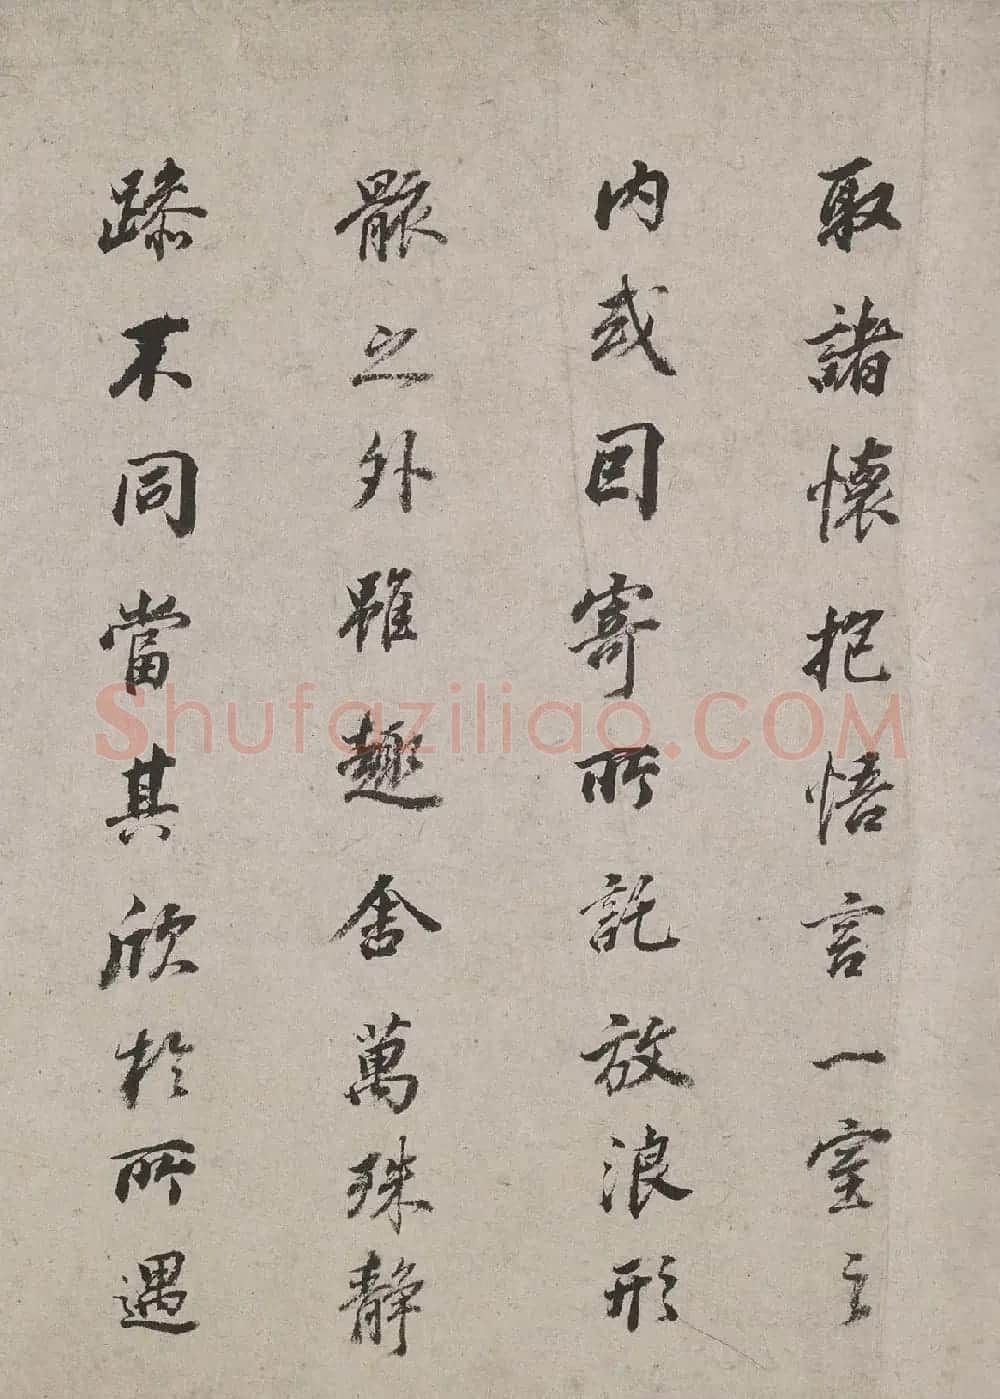 取諸懷抱悟言一室之
内或因寄所託放浪形
骸之外雖趣舍萬殊静
躁不同當其欣於所遇
Shufaziliao.COM